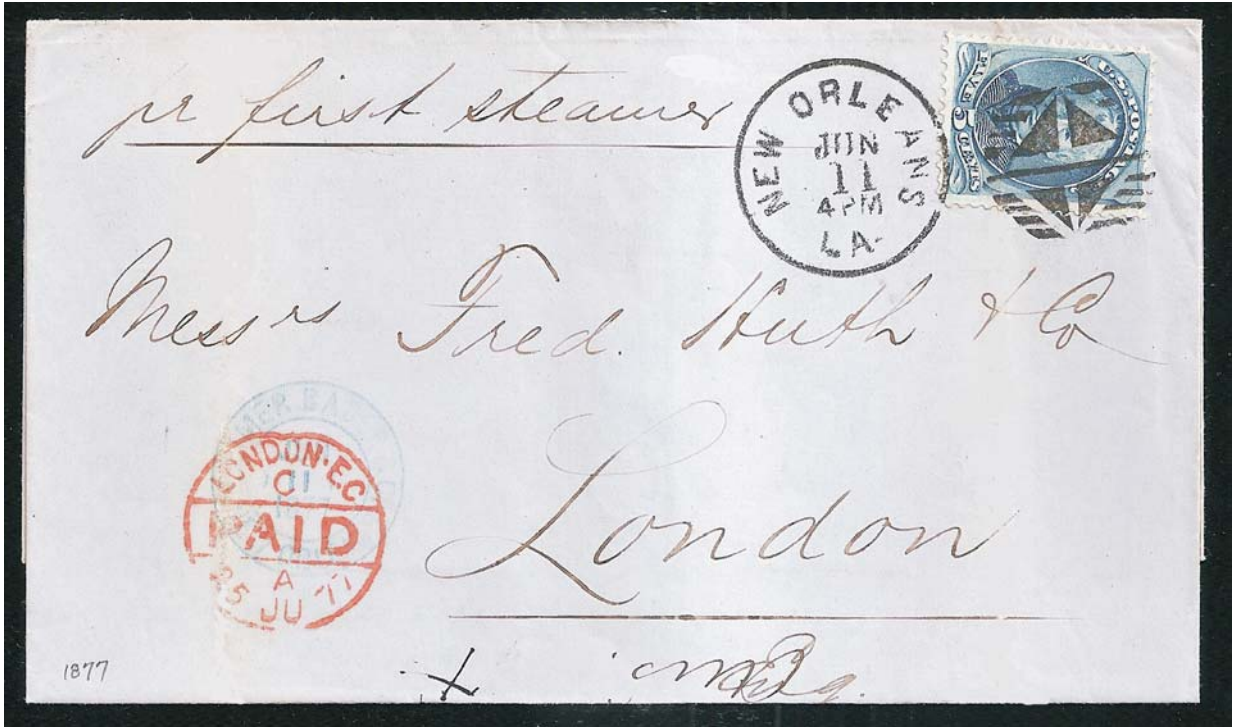 pr first steamer
NEW ORLEANS
JUN
11
4PM
LA.
U.S. POSTAGE
FIVE 5 CENTS
Messrs Fred. Huth & Co
London
LONDON·E.C
PAID
A
25 JU 77
1877
X